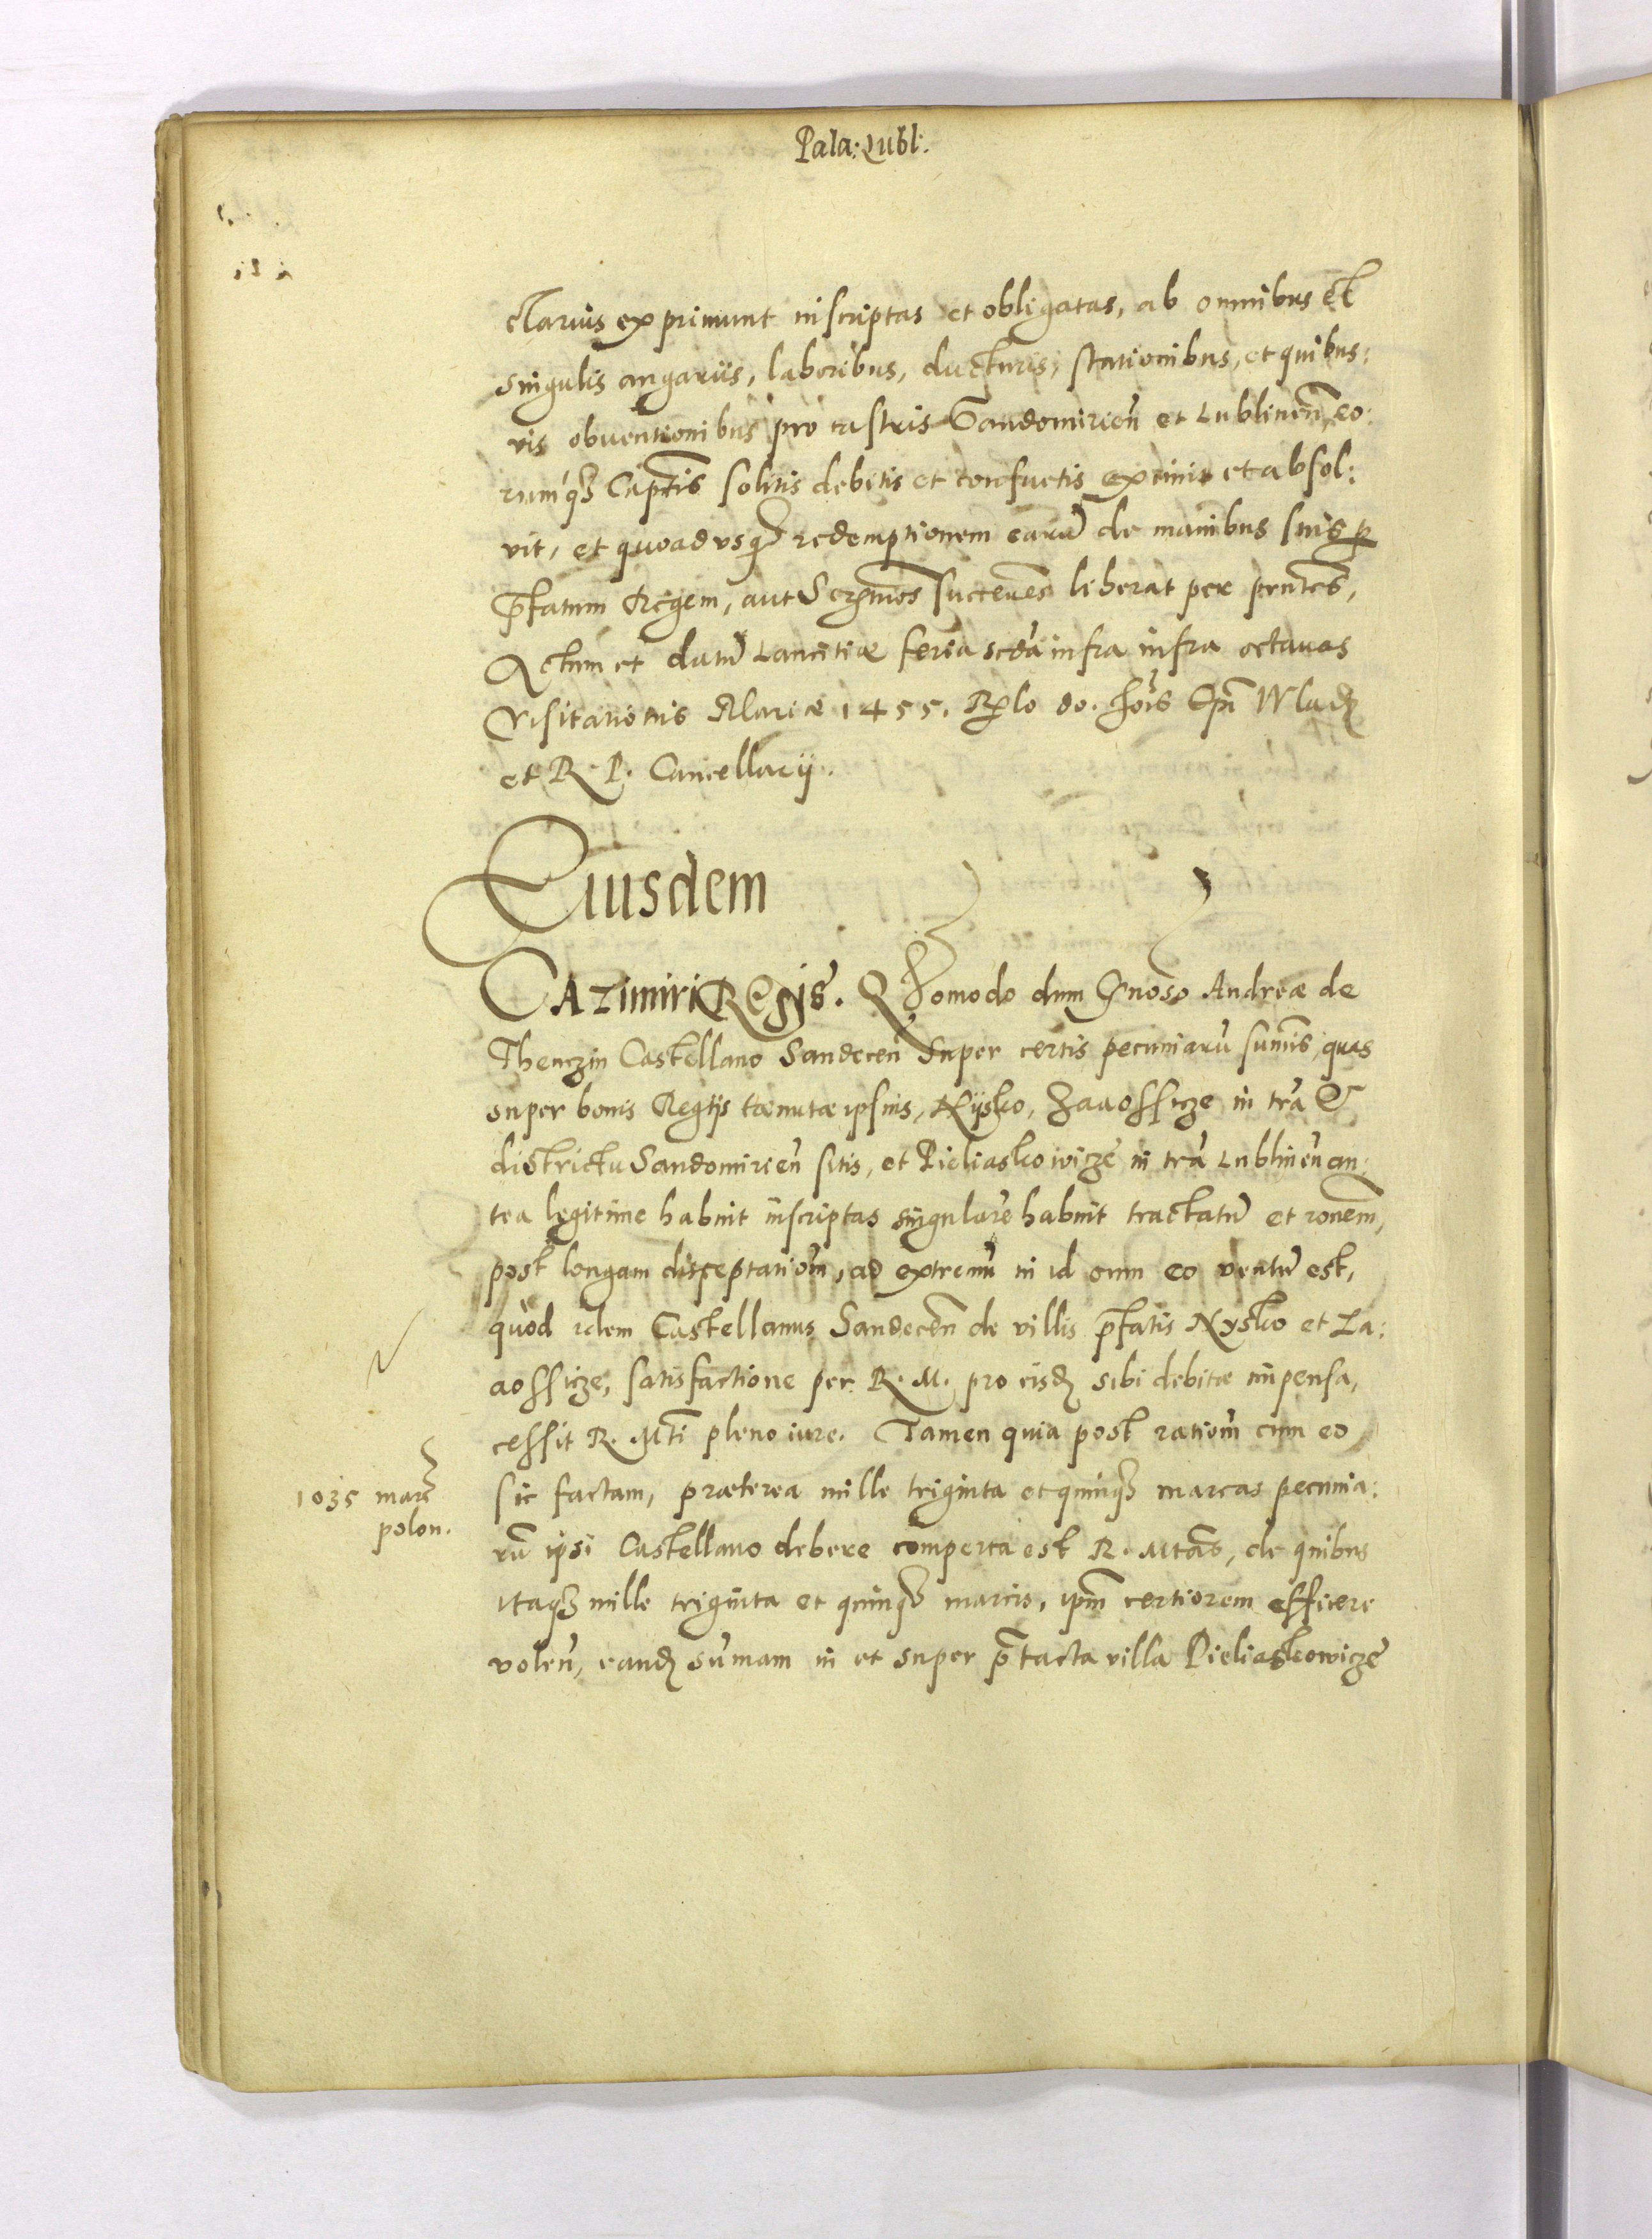 Pala: Lubl:
clarius exprimunt inscriptas et obligatas, ab omnibus et
singulis angariis, laboribus, ducturis, stationibus, et quibus:
vis obuentionibus pro castris Sandomirien̄ et Lublinen̄ eo:
rumq₃ Cap̄tis solitis debitis et consuetis eximit et absol:
vit, et quoadusq₃ redemptionem earū de manibus suis p
p̄fatum Regem, aut Serm̄os succen̄es liberat per p̄ntes,
Actum et datū Lancitiæ feria sc̄da infra infra octauas
Visitationis Mariæ 1455. Rlo do. Jois Ep̄i Wlad
et R. P. Cancellarij.
Eiusdem
Cazimiri Regis. Quomodo dum Gnōso Andreæ de
Thenczin Castellano Sandecen̄ super certis pecuniarū sum̄is, quas
super bonis Regijs tænutæ ipsius, Nysko, Zaaossicze in tr̄a &
districtu Sandomirien̄ sitis, et Pieliaskowicze in tr̄a Lublinen̄ an:
tea legitime habuit inscriptas singularē habuit tractatū et ron̄em,
post longam disceptatiōm, ad extremū in id cum eo ventū est,
quod idem Castellanus Sandecen̄ de villis p̄fatis Nysko et Za:
aossicze, satisfactione per R. M. pro eisd sibi debitæ impensa,
cessit R. Mti pleno iure. Tamen quia post ratiōm cum eo
sic factam, præterea mille triginta et quinq₃ marcas pecunia:
1035 marc
polon.
rū ipsi Castellano debere comperta est R. Mtas, de quibus
itaq₃ mille triginta et quinq₃ marcis, ipm̄ certiorem efficere
volen̄, eand sūmam in et super p̄tacta villa Pieliaskowicze